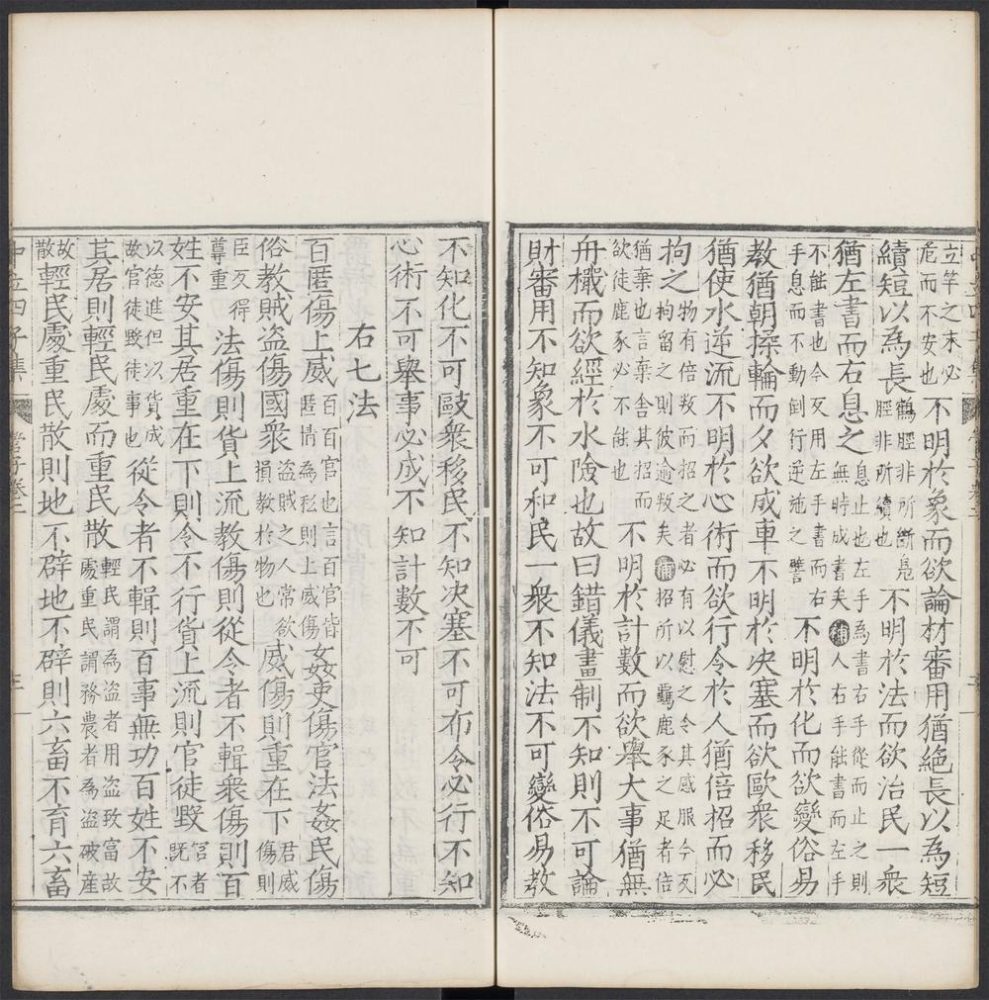 立竿之末必
危而不安也
不明於象而欲論材審用猶絶長以為短
續短以為長
鶴脛非所斷鳧
脛非所續也
不明於法而欲治民一衆
猶左書而右息之
息止也左手為書右手從而止之則
無時成書矣補人右手能書而左手
不能書也今反用左手書而右
手息而不動倒行逆施之譬
不明於化而欲變俗易
教猶朝揉輪而夕欲成車不明於决塞而欲歐衆移民
猶使水逆流不明於心術而欲行令於人猶倍招而必
拘之
物有倍叛而招之者必有以慰之令其感服今反
拘留之則彼逾叛矣補招所以羈鹿豕之足者倍
猶棄也言棄舍其招而
欲徒鹿豕必不能也
不明於計數而欲舉大事猶無
舟檝而欲經於水險也故曰錯儀畫制不知則不可論
財審用不知象不可和民一衆不知法不可變俗易教
不知化不可敺衆移民不知决塞不可布令必行不知
心術不可舉事必成不知計數不可
右七法
百匿傷上威
百百官也言百官皆
匿情為私則上威傷
姦吏傷官法姦民傷
俗教賊盗傷國衆
盗賊之人常欲
損教於物也
威傷則重在下
君威
傷則
臣反得
尊重
法傷則貨上流教傷則從令者不輯衆傷則百
姓不安其居重在下則令不行貨上流則官徒毀
官者
既不
以德進但以貨成
故官徒毀徒事也
從令者不輯則百事無功百姓不安
其居則輕民處而重民散
輕民謂為盗者用盗致富故
處重民謂務農者為盗破産
故
散
輕民處重民散則地不辟地不辟則六畜不育六畜